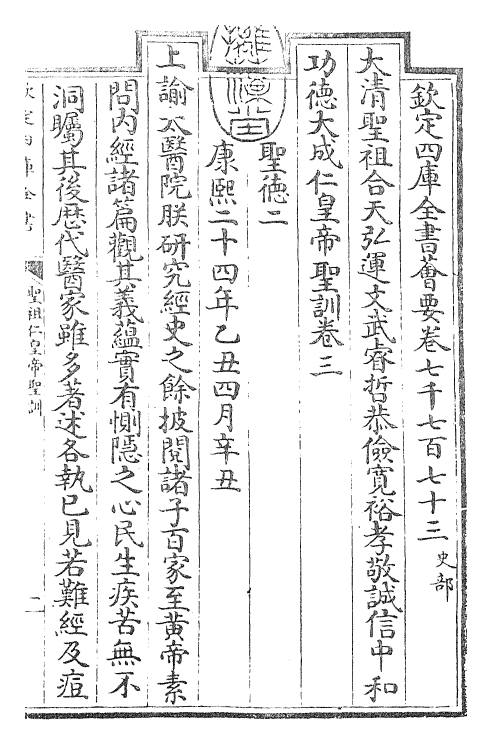 欽定四庫全書薈要卷七千七百七十三 史部
大清聖祖合天弘運文武睿哲恭儉寬裕孝敬誠信中和
功德大成仁皇帝聖訓卷三
聖德二
康熙二十四年乙丑四月辛丑
上諭太醫院朕研究經史之餘披閱諸子百家至黃帝素
問內經諸篇觀其義蘊實有惻隱之心民生疾苦無不
洞矚其後歷代醫家雖多著述各執已見若難經及痘
欽定四庫全書
聖祖仁皇帝聖訓
一